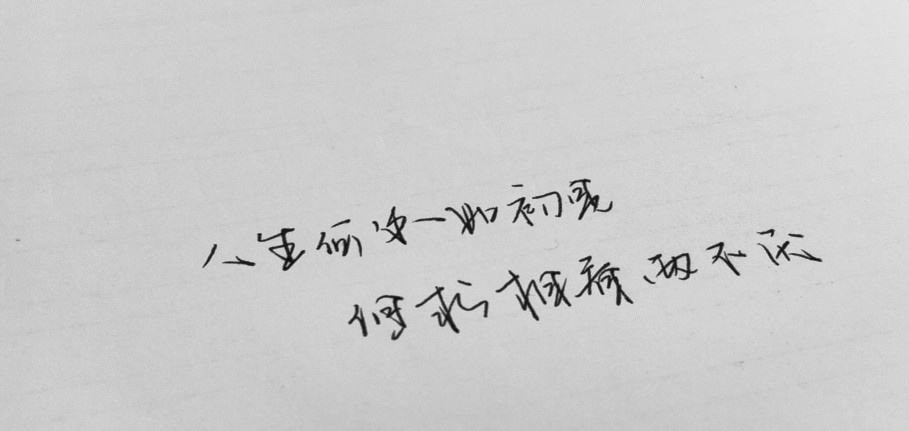 人生何必一如初见
何求相看两不厌